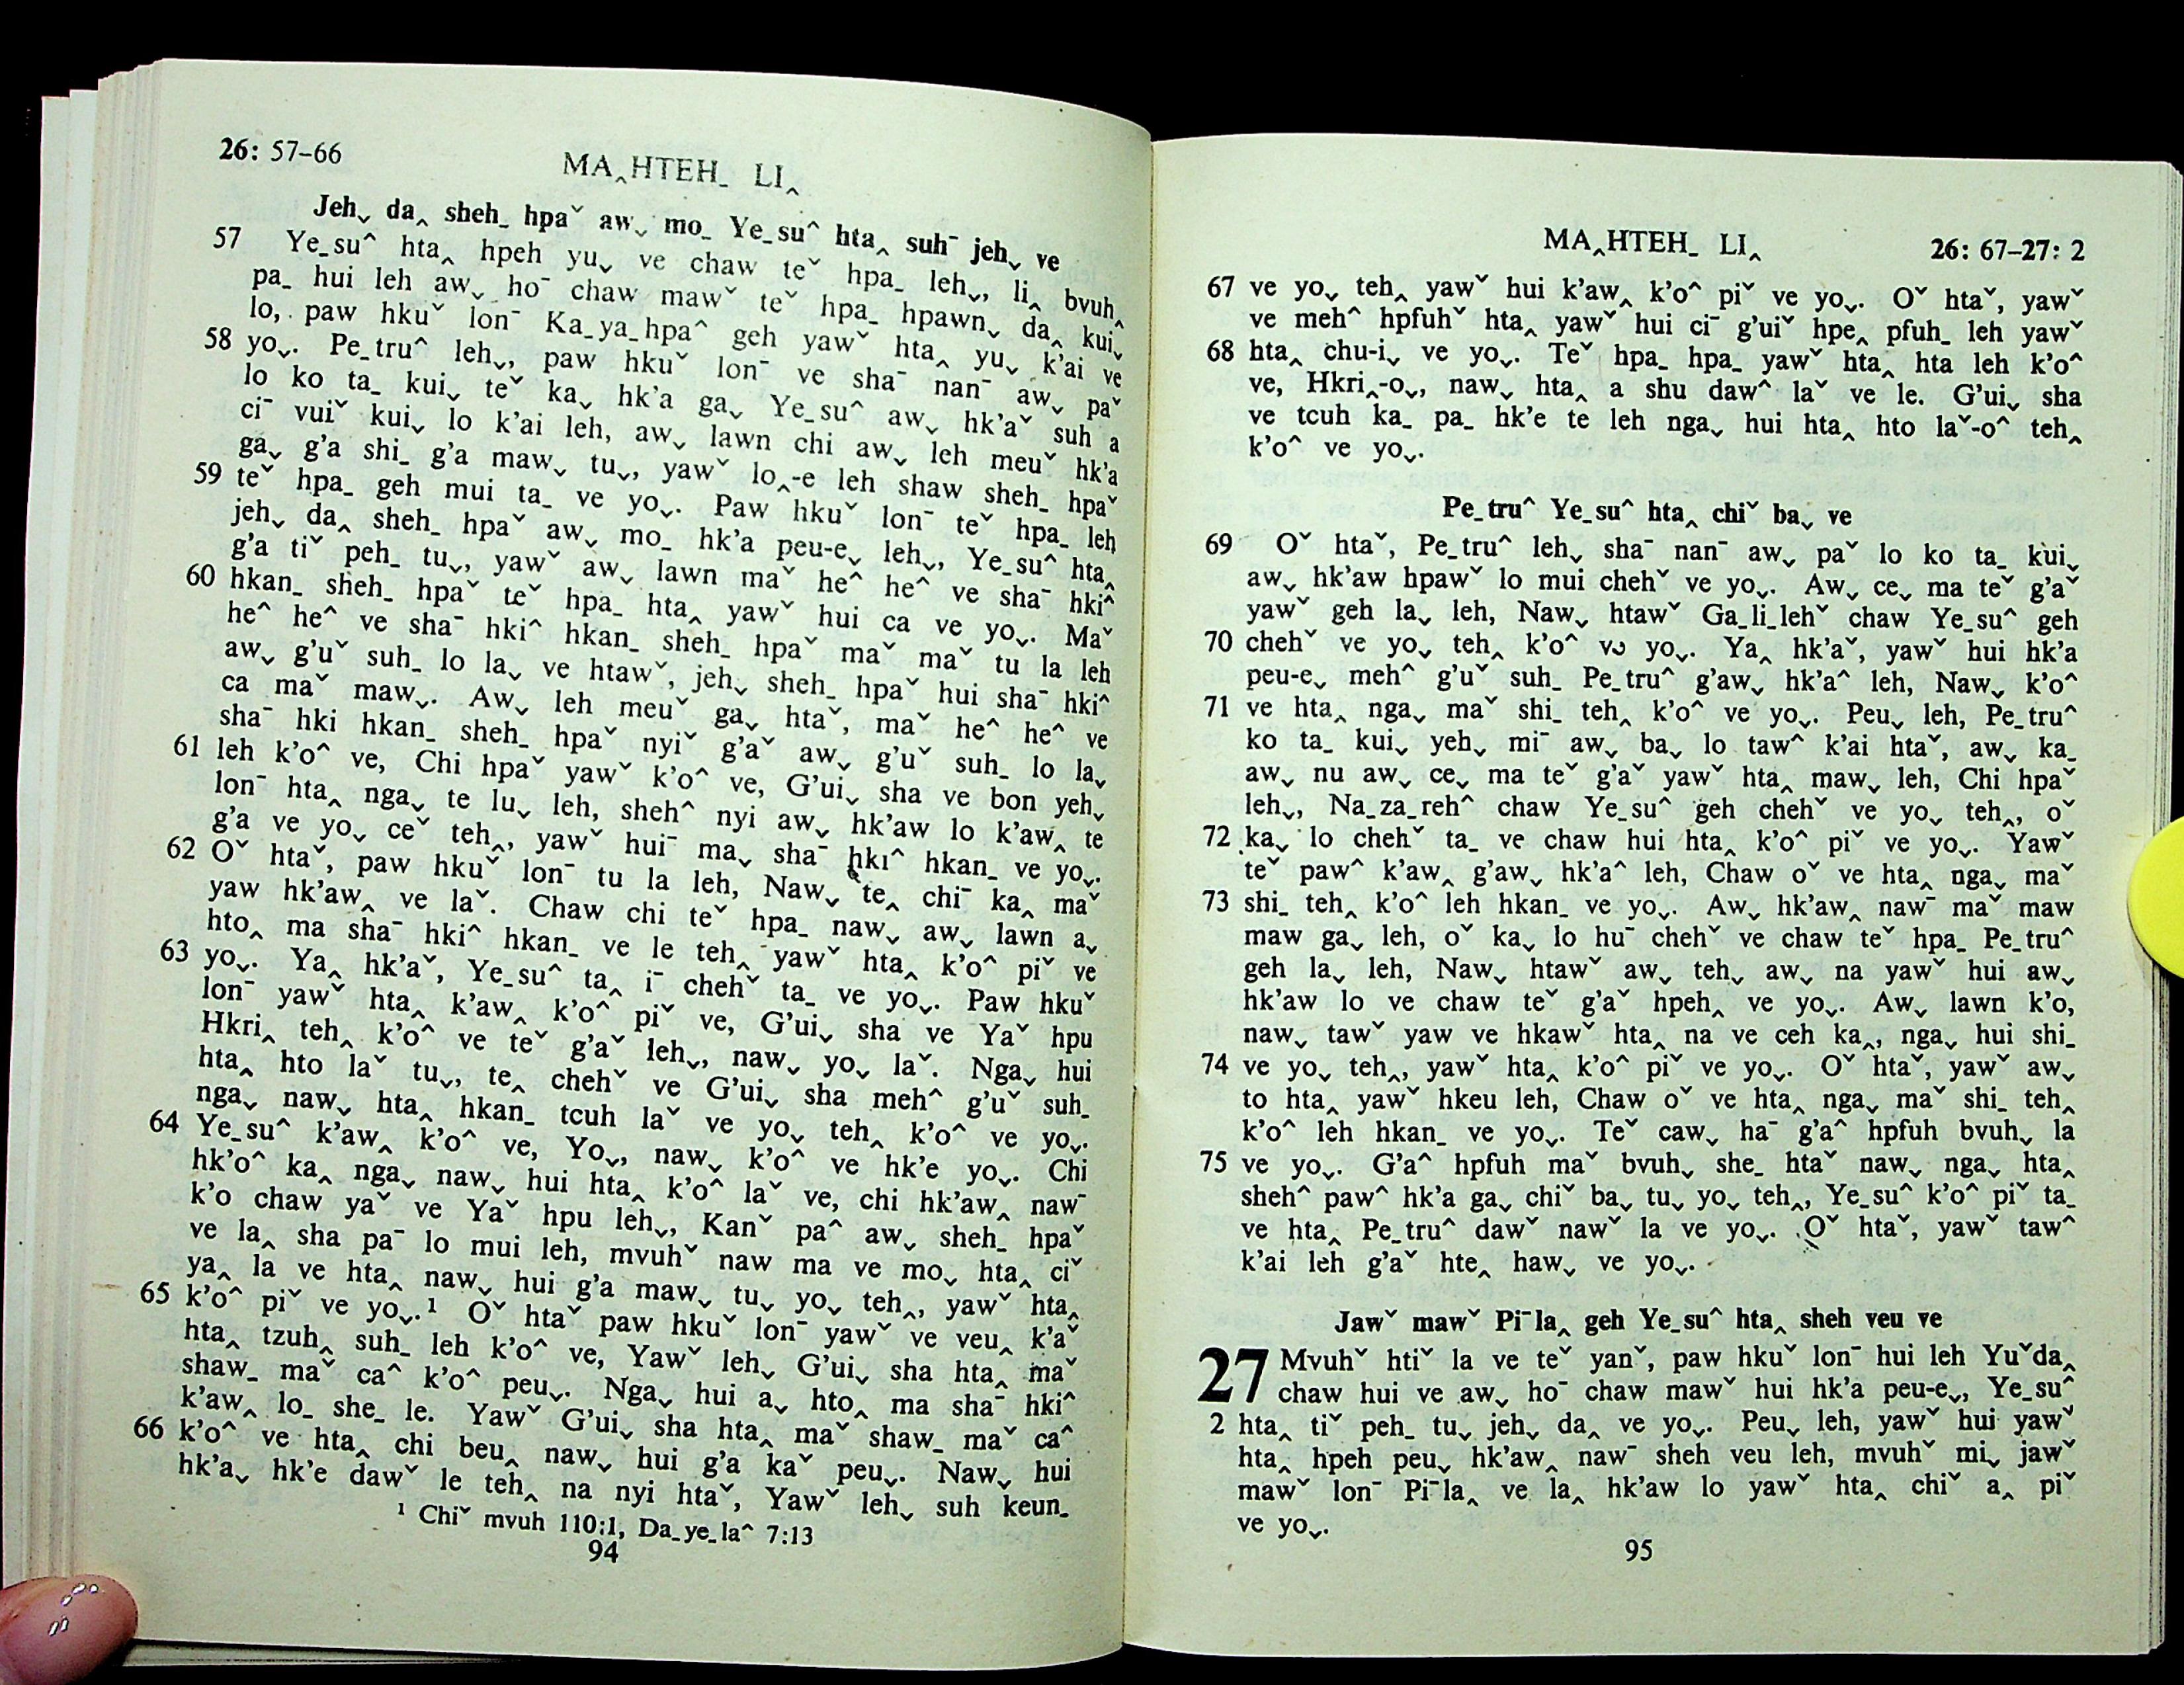 26: 57–66
MA‸HTEH_ LI‸
Jeh⌄ da‸ sheh_ hpaˇ aw⌄ mo_ Ye_suˆ hta‸ suhˉ jeh⌄ ve
57 Ye_suˆ hta‸ hpeh yu⌄ ve chaw teˇ hpa_ leh⌄, li‸ bvuh‸
pa_ hui leh aw⌄ hoˉ chaw mawˇ teˇ hpa_ hpawn⌄ da‸ kui⌄
lo, paw hkuˇ lonˉ Ka_ya_hpaˆ geh yawˇ hta‸ yu⌄ k’ai ve
58 yo⌄. Pe_truˆ leh⌄, paw hkuˇ lonˉ ve shaˉ nanˉ aw⌄ paˇ
lo ko ta_ kui⌄ teˇ ka⌄ hk’a ga⌄ Ye_suˆ aw⌄ hk’aˇ suh a
ciˉ vuiˇ kui⌄ lo k’ai leh, aw⌄ lawn chi aw⌄ leh meuˇ hk’a
ga⌄ g’a shi_ g’a maw⌄ tu⌄, yawˇ lo‸-e leh shaw sheh_ hpaˇ
59 teˇ hpa_ geh mui ta_ ve yo⌄. Paw hkuˇ lonˉ teˇ hpa_ leh
jeh⌄ da‸ sheh_ hpaˇ aw⌄ mo_ hk’a peu-e⌄ leh⌄, Ye_suˆ hta‸
g’a tiˇ peh_ tu⌄, yawˇ aw⌄ lawn maˇ heˆ heˆ ve shaˉ hkiˆ
60 hkan_ sheh_ hpaˇ teˇ hpa_ hta‸ yawˇ hui ca ve yo⌄. Maˇ
heˆ heˆ ve shaˉ hkiˆ hkan_ sheh_ hpaˇ maˇ maˇ tu la leh
aw⌄ g’uˇ suh_ lo la⌄ ve htawˇ, jeh⌄ sheh_ hpaˇ hui shaˉ hkiˆ
ca maˇ maw⌄. Aw⌄ leh meuˇ ga⌄ htaˇ, maˇ heˆ heˆ ve
shaˉ hki hkan_ sheh_ hpaˇ nyiˇ g’aˇ aw⌄ g’uˇ suh_ lo la⌄
61 leh k’oˆ ve, Chi hpaˇ yawˇ k’oˆ ve, G’ui⌄ sha ve bon yeh⌄
lonˉ hta‸ nga⌄ te lu⌄ leh, shehˆ nyi aw⌄ hk’aw lo k’aw‸ te
g’a ve yo⌄ ceˇ teh‸, yawˇ huiˉ ma⌄ shaˉ hkıˆ hkan_ ve yo⌄.
62 Oˇ htaˇ, paw hkuˇ lonˉ tu la leh, Naw⌄ te‸ chiˉ ka‸ maˇ
yaw hk’aw‸ ve laˇ. Chaw chi teˇ hpa_ naw⌄ aw⌄ lawn a⌄
hto‸ ma shaˉ hkiˆ hkan_ ve le teh‸ yawˇ hta‸ k’oˆ piˇ ve
63 yo⌄. Ya‸ hk’aˇ, Ye_suˆ ta‸ iˉ chehˇ ta_ ve yo⌄. Paw hkuˇ
lonˉ yawˇ hta‸ k’aw‸ k’oˆ piˇ ve, G’ui⌄ sha ve Yaˇ hpu
Hkri‸ teh‸ k’oˆ ve teˇ g’aˇ leh⌄, naw⌄ yo⌄ laˇ. Nga⌄ hui
hta‸ hto laˇ tu⌄, te‸ chehˇ ve G’ui⌄ sha mehˆ g’uˇ suh_
nga⌄ naw⌄ hta‸ hkan_ tcuh laˇ ve yo⌄ teh‸ k’oˆ ve yo⌄.
64 Ye_suˆ k’aw‸ k’oˆ ve, Yo⌄, naw⌄ k’oˆ ve hk’e yo⌄. Chi
hk’oˆ ka‸ nga⌄ naw⌄ hui hta‸ k’oˆ laˇ ve, chi hk’aw‸ nawˉ
k’o chaw yaˇ ve Yaˇ hpu leh⌄, Kanˇ paˆ aw⌄ sheh_ hpaˇ
ve la‸ sha paˉ lo mui leh, mvuhˇ naw ma ve mo⌄ hta‸ ciˇ
ya‸ la ve hta‸ naw⌄ hui g’a maw⌄ tu⌄ yo⌄ teh‸, yawˇ hta‸
65 k’oˆ piˇ ve yo⌄.¹ Oˇ htaˇ paw hkuˇ lonˉ yawˇ ve veu‸ k’aˇ
hta‸ tzuh‸ suh_ leh k’oˆ ve, Yawˇ leh⌄ G’ui⌄ sha hta‸ maˇ
shaw_ maˇ caˆ k’oˆ peu⌄. Nga⌄ hui a⌄ hto‸ ma shaˉ hkiˆ
k’aw‸ lo_ she_ le. Yawˇ G’ui⌄ sha hta‸ maˇ shaw_ maˇ caˆ
66 k’oˆ ve hta‸ chi beu‸ naw⌄ hui g’a kaˇ peu⌄. Naw⌄ hui
hk’a⌄ hk’e dawˇ le teh‸ na nyi htaˇ, Yawˇ leh⌄ suh keun_
¹ Chiˇ mvuh 110:1, Da_ye_laˆ 7:13
94
MA‸HTEH_ LI‸
26: 67–27: 2
67 ve yo⌄ teh‸ yawˇ hui k’aw‸ k’oˆ piˇ ve yo⌄. Oˇ htaˇ, yawˇ
ve mehˆ hpfuhˇ hta‸ yawˇ hui ciˉ g’uiˇ hpe‸ pfuh_ leh yawˇ
68 hta‸ chu-i⌄ ve yo⌄. Teˇ hpa_ hpa_ yawˇ hta‸ hta leh k’oˆ
ve, Hkri‸-o⌄, naw⌄ hta‸ a shu dawˆ laˇ ve le. G’ui⌄ sha
ve tcuh ka_ pa_ hk’e te leh nga⌄ hui hta‸ hto laˇ-oˆ teh‸
k’oˆ ve yo⌄.
Pe_truˆ Ye_suˆ hta‸ chiˇ ba⌄ ve
69 Oˇ htaˇ, Pe_truˆ leh⌄ shaˉ nanˉ aw⌄ paˇ lo ko ta_ kui⌄
aw⌄ hk’aw hpawˇ lo mui chehˇ ve yo⌄. Aw⌄ ce⌄ ma teˇ g’aˇ
yawˇ geh la⌄ leh, Naw⌄ htawˇ Ga_li_lehˇ chaw Ye_suˆ geh
70 chehˇ ve yo⌄ teh‸ k’oˆ ve yo⌄. Ya‸ hk’aˇ, yawˇ hui hk’a
peu-e⌄ mehˆ g’uˇ suh_ Pe_truˆ g’aw⌄ hk’aˆ leh, Naw⌄ k’oˆ
71 ve hta‸ nga⌄ maˇ shi_ teh‸ k’oˆ ve yo⌄. Peu⌄ leh, Pe_truˆ
ko ta_ kui⌄ yeh⌄ miˉ aw⌄ ba⌄ lo tawˆ k’ai htaˇ, aw⌄ ka_
aw⌄ nu aw⌄ ce⌄ ma teˇ g’aˇ yawˇ hta‸ maw⌄ leh, Chi hpaˇ
leh⌄, Na_za_rehˆ chaw Ye_suˆ geh chehˇ ve yo⌄ teh‸, oˇ
72 ka⌄ lo chehˇ ta_ ve chaw hui hta‸ k’oˆ piˇ ve yo⌄. Yawˇ
teˇ pawˆ k’aw‸ g’aw⌄ hk’aˆ leh, Chaw oˇ ve hta‸ nga⌄ maˇ
73 shi_ teh‸ k’oˆ leh hkan_ ve yo⌄. Aw⌄ hk’aw‸ nawˉ maˇ maw
maw ga⌄ leh, oˇ ka⌄ lo huˉ chehˇ ve chaw teˇ hpa_ Pe_truˆ
geh la⌄ leh, Naw⌄ htawˇ aw⌄ teh⌄ aw⌄ na yawˇ hui aw⌄
hk’aw lo ve chaw teˇ g’aˇ hpeh‸ ve yo⌄. Aw⌄ lawn k’o,
naw⌄ tawˇ yaw ve hkawˇ hta‸ na ve ceh ka‸, nga⌄ hui shi_
74 ve yo⌄ teh‸, yawˇ hta‸ k’oˆ piˇ ve yo⌄. Oˇ htaˇ, yawˇ aw⌄
to hta‸ yawˇ hkeu leh, Chaw oˇ ve hta‸ nga⌄ maˇ shi_ teh‸
k’oˆ leh hkan_ ve yo⌄. Teˇ caw⌄ haˉ g’aˆ hpfuh bvuh⌄ la
75 ve yo⌄. G’aˆ hpfuh maˇ bvuh⌄ she_ htaˇ naw⌄ nga⌄ hta‸
shehˆ pawˆ hk’a ga⌄ chiˇ ba⌄ tu⌄ yo⌄ teh‸, Ye_suˆ k’oˆ piˇ ta_
ve hta‸ Pe_truˆ dawˇ nawˇ la ve yo⌄. Oˇ htaˇ, yawˇ tawˆ
k’ai leh g’aˇ hte‸ haw⌄ ve yo⌄.
Jawˇ mawˇ Piˉla‸ geh Ye_suˆ hta‸ sheh veu ve
27 Mvuhˇ htiˇ la ve teˇ yanˇ, paw hkuˇ lonˉ hui leh Yuˇda‸
chaw hui ve aw⌄ hoˉ chaw mawˇ hui hk’a peu-e⌄, Ye_suˆ
2 hta‸ tiˇ peh_ tu⌄ jeh⌄ da‸ ve yo⌄. Peu⌄ leh, yawˇ hui yawˇ
hta‸ hpeh peu⌄ hk’aw‸ nawˉ sheh veu leh, mvuhˇ mi⌄ jawˇ
mawˇ lonˉ Piˉla‸ ve la‸ hk’aw lo yawˇ hta‸ chiˇ a‸ piˇ
ve yo⌄.
95